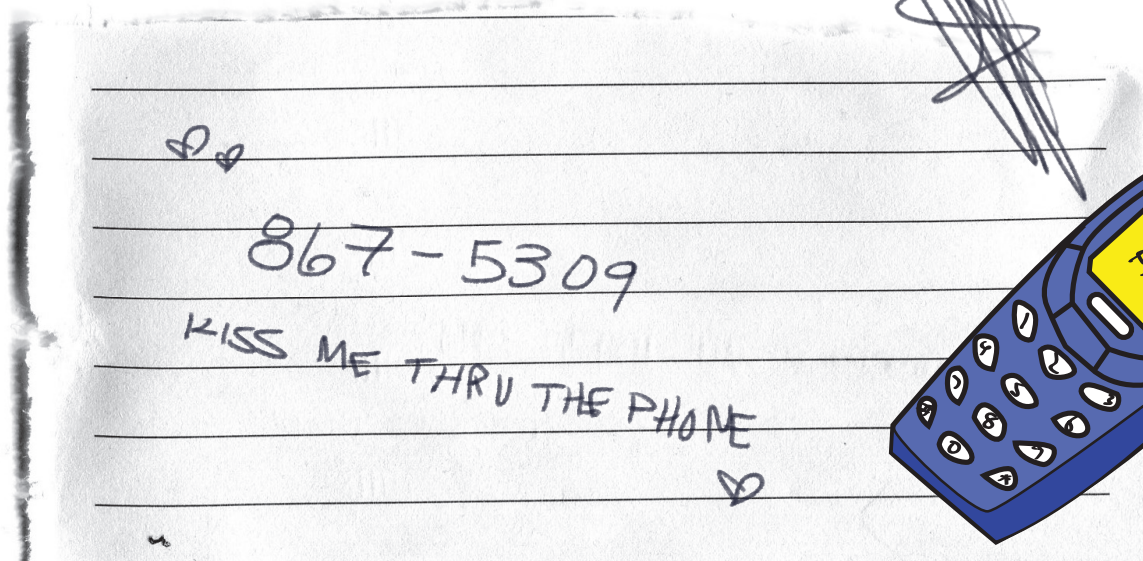 867-5309
KISS ME THRU THE PHONE
1
4
2
7
5
3
*
8
6
0
9
#